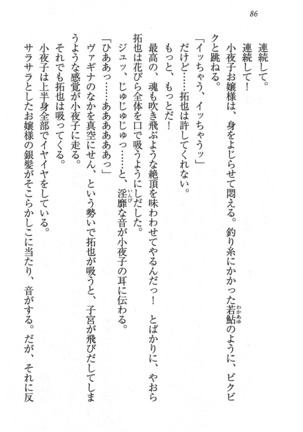 86
連続して。
連続して！
小夜子お嬢様は、身をよじらせて悶える。釣り糸にかかった若鮎のように、ビクビ
わかあゆ
クと跳ねる。
「イッちゃう、イッちゃうッ」
だけど……拓也は許してくれない。
もっと、もっとだ！
最高の、魂も吹き飛ぶような絶頂を味わわせてやるんだっ！　とばかりに、やおら
拓也は花びら全体を口で吸うようにしだした。
ジュッ、じゅじゅじゅっ……と、淫靡な音が小夜子の耳に伝わる。
いんび
「ひああっ……ああああああっ」
ヴァギナのなかを真空にせん、という勢いで拓也が吸うと、子宮が飛びだしてしま
うような感覚が小夜子に走る。
それでも拓也は吸ってくる。
小夜子は上半身全部でイヤイヤをしていた。
サラサラとしたお嬢様の銀髪がそこらかしこに当たり、音がする。だが、それに反